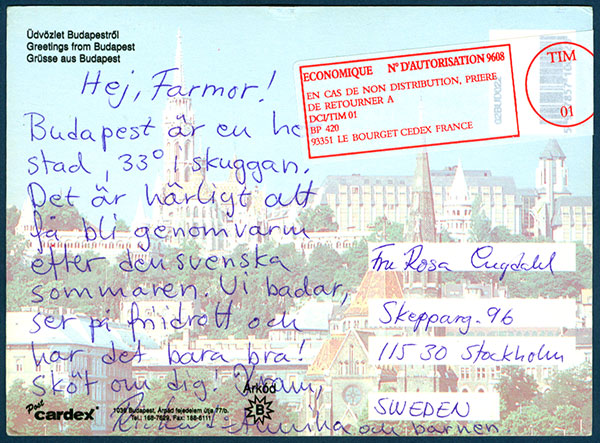 Üdvözlet Budapestről
Greetings from Budapest
Grüsse aus Budapest
ECONOMIQUE N° D'AUTORISATION 9608
EN CAS DE NON DISTRIBUTION, PRIERE
DE RETOURNER A
DCI/TIM 01
BP 420
93351 LE BOURGET CEDEX FRANCE
TIM
01
Hej, Farmor!
Budapest är en he
stad, 33° i skuggan.
Det är härligt att
få bli genomvarm
efter den svenska
sommaren. Vi badar,
ser på friidrott och
har det bara bra!
Sköt om dig! Kram,
Annika och barnen
Fru Rosa Engdahl
Skepparg. 96
115 30 Stockholm
SWEDEN
Post cardex
Árkód
B
1036 Budapest, Árpád fejedelem útja 77/b.
Tel.: 168-7629, Fax: 188-6111